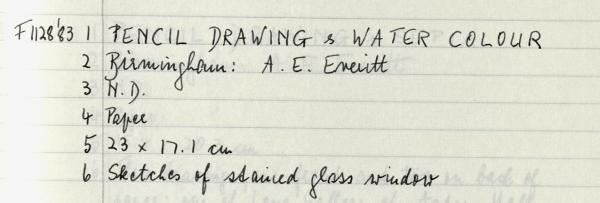 F1128'83 1 PENCIL DRAWING & WATER COLOUR
2 Birmingham: A. E. Everitt
3 N.D.
4 Paper
5 23 x 17.1 cm
6 Sketches of stained glass window